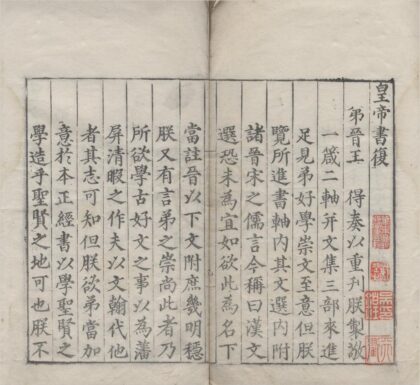 皇帝書復
弟晉王 得奏以重刊朕製敬
一箴二軸并文集三部來進
足見弟好學崇文至意但朕
覽所進書軸內其文選内附
諸晉宋之儒言今稱曰漢文
選恐未為宜如欲此為名下
當註晉以下文附庶幾明穩
朕又有言弟之崇尚此者乃
所欲學古好文之事以為藩
屏清暇之作夫以文翰代他
者其志可知但朕欲弟當加
意於本正經書以學聖賢之
學造乎聖賢之地可也朕不